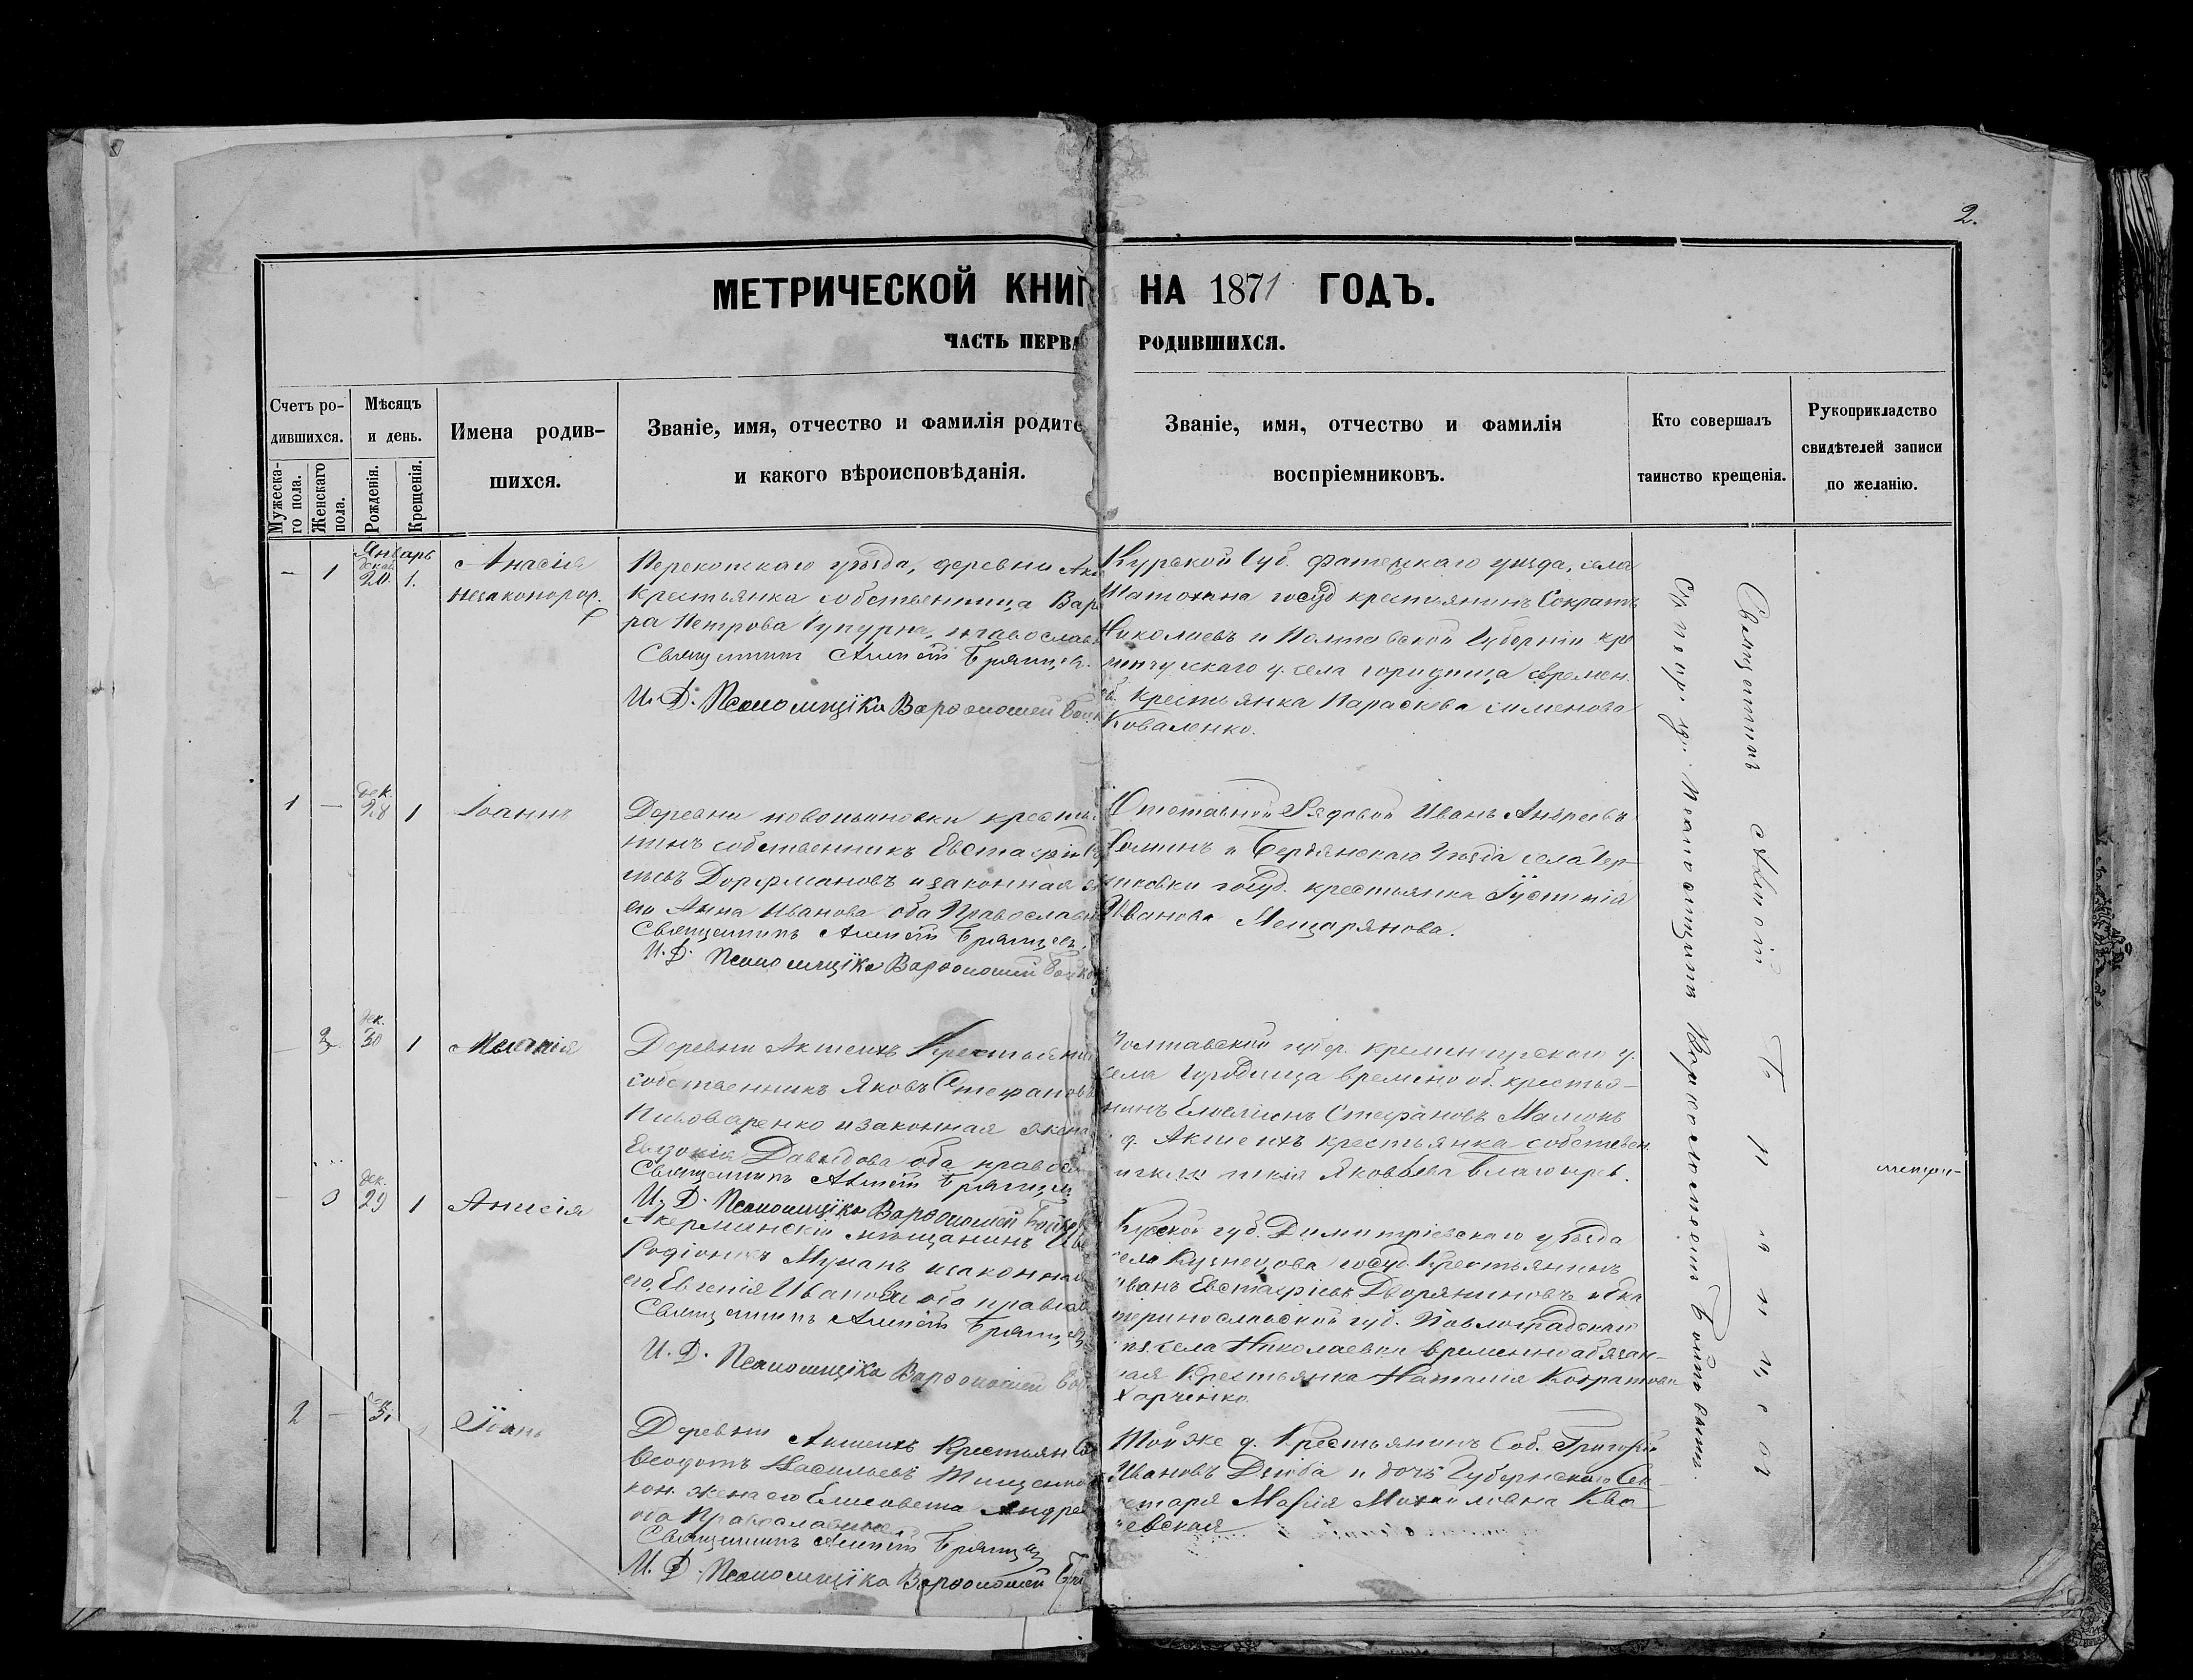 2.
МЕТРИЧЕСКОЙ КНИГ НА 1871 ГОДЪ.
ЧАСТЬ ПЕРВА РОДИВШИХСЯ.
Счетъ ро-
дившихся.
Мужеска-
го пола.
Женскаго
пола.
Мѣсяцъ
и день.
Рожденія.
Крещенія.
Имена родив-
шихся.
Званіе, имя, отчество и фамилія родите
и какого вѣроисповѣданія.
Званіе, имя, отчество и фамилія
воспріемниковъ.
Кто совершалъ
таинство крещенія.
Рукоприкладство
свидѣтелей записи
по желанію.
Январь
— 1 20. 1.
незаконорож.
Перекопскаго уѣзда, деревни
Крестьянка собственница Вар
ра Петрова православ
Священникъ Алексій Брянцевъ.
И. Д. Псаломщика Варѳоломей
Курской губ. Фатежскаго уѣзда, села
госуд крестьянинъ Сократъ
Николаевъ и Полтавской Губерніи Кре
менчугскаго у. села Городища времен.
об. крестьянка Параскева Сименова
Коваленко.
дек.
1 — 28 1 Іоаннъ
Деревни крестья
нинъ собственникъ Евстафій
Дорфмановъ и законная
его Анна Иванова оба Православн
Священникъ Алексій Брянцевъ.
И. Д. Псаломщика Варѳоломей
Отставной Рядовой Иванъ Андреевъ
Ѳоминъ и Бердянскаго Уѣзда села Чер-
ниговки госуд. крестьянка Іустинія
Иванова Мещарянова.
дек.
— 2 30 1 Меланія
Деревни Акшеихъ Крестьянин
собственникъ Яковъ Стефановъ
Пивоваренко и законная жена
Евдокія Давыдова оба правосл
Священникъ Алексій Брянцев
И. Д. Псаломщика Варѳоломей
Полтавской губер. Кременчугскаго у.
села Городища временно об. крестья-
нинъ Стефановъ
д. Акшеихъ крестьянка собствен
Яковлева
дек.
— 3 29 1 Анисія
мѣщанинъ
Родіоновъ и законная
его, Евгенія Иванова оба правосла
Священникъ Алексій Брянцев
И. Д. Псаломщика Варѳоломей
Курской губ. Димитріевскаго уѣзда
села Кузнецова госуд. Крестьянинъ
Иванъ Евстафіевъ Дворяниновъ и Ека
теринославской губ. Павлоградскаго
села Николаевки временно обязан-
ная Крестьянка Наталія Кодратова
Харченко.
2 — 31 Іоан
Деревни Акшеихъ Крестьян Со
Ѳеодотъ Васильевъ Тищенко
кон. жена его Елисовета Андре
оба Православные
Священникъ Алексій Брянцев
И. Д. Псаломщика Варѳоломей
Той же д. Крестьянинъ Соб. Григорій
Ивановъ Дзюба и дочь Губернскаго Сек-
етаря Марія Михайловна Ква
евская
Священникъ Алексій Брянцевъ
Псаломщикъ Варѳоломей